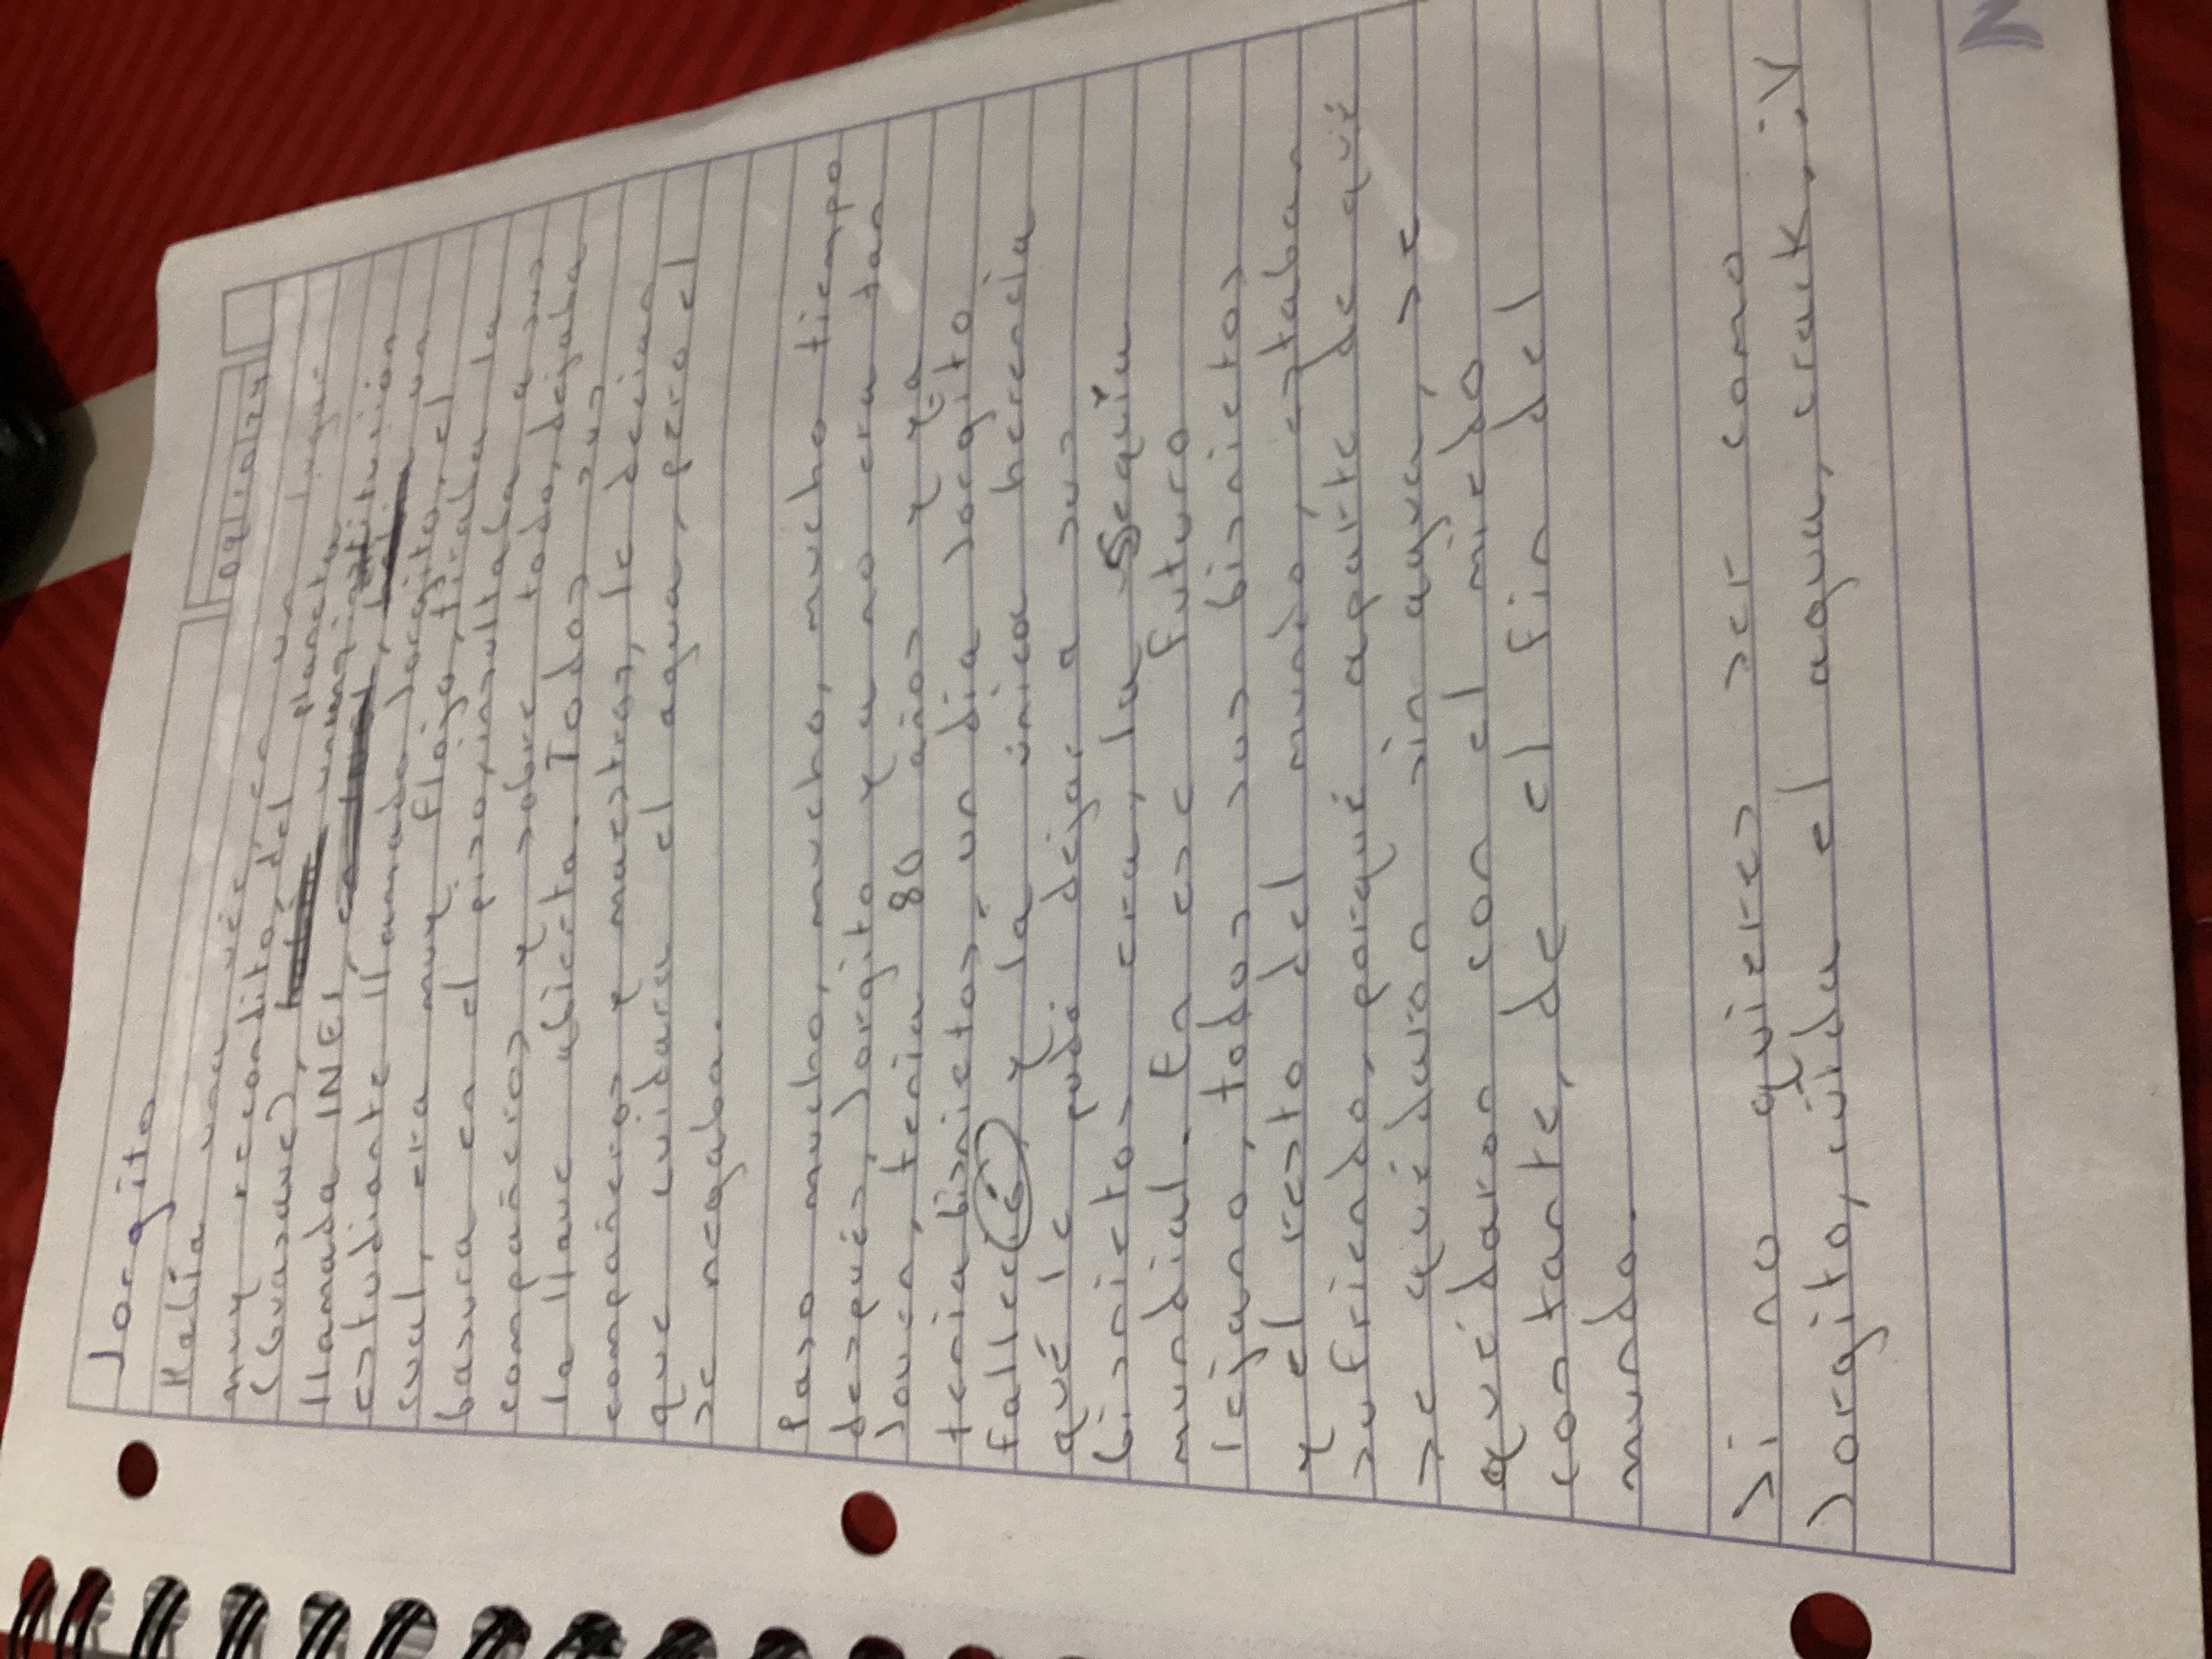 09/10/24
Jorgito
Había una véz, en un lugar
muy recondito, del planeta
(Guasave), una institución
llamada INEI, había un
estudiante llamado Jorgito, el
cual, era muy flojo, tiraba la
basura en el piso, insultaba a sus
compañeros y sobre todo, dejaba
la llave abierta. Todos sus
compañeros y maestros, le decian
que cuidara el agua, pero el
se negaba.
Paso mucho, mucho, mucho, mucho tiempo
después, Jorgito ya no era tan
Joven, tenia 80 años y ya
tenia bisnietos, un dia Jorgito
fallecio, y la única herencia
qué le pudo dejar a sus
bisnietos era, la sequia
mundial. En ese futuro
lejano, todos sus bisnietos
y el resto del mundo, estaban
sufriendo, porqué aparte de qué
se quédaron sin agua, se
quédaron con el miedo
constante, de el fin del
mundo.
Si no quieres ser como
Jorgito, cuida el agua, crack ;V